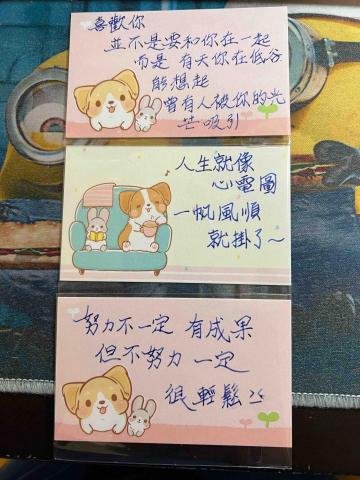 喜歡你
並不是要和你在一起
而是 有天你在低谷
能想起
曾有人被你的光
芒吸引
人生就像
心電圖
一帆風順
就掛了~
努力不一定 有成果
但不努力 一定
很輕鬆